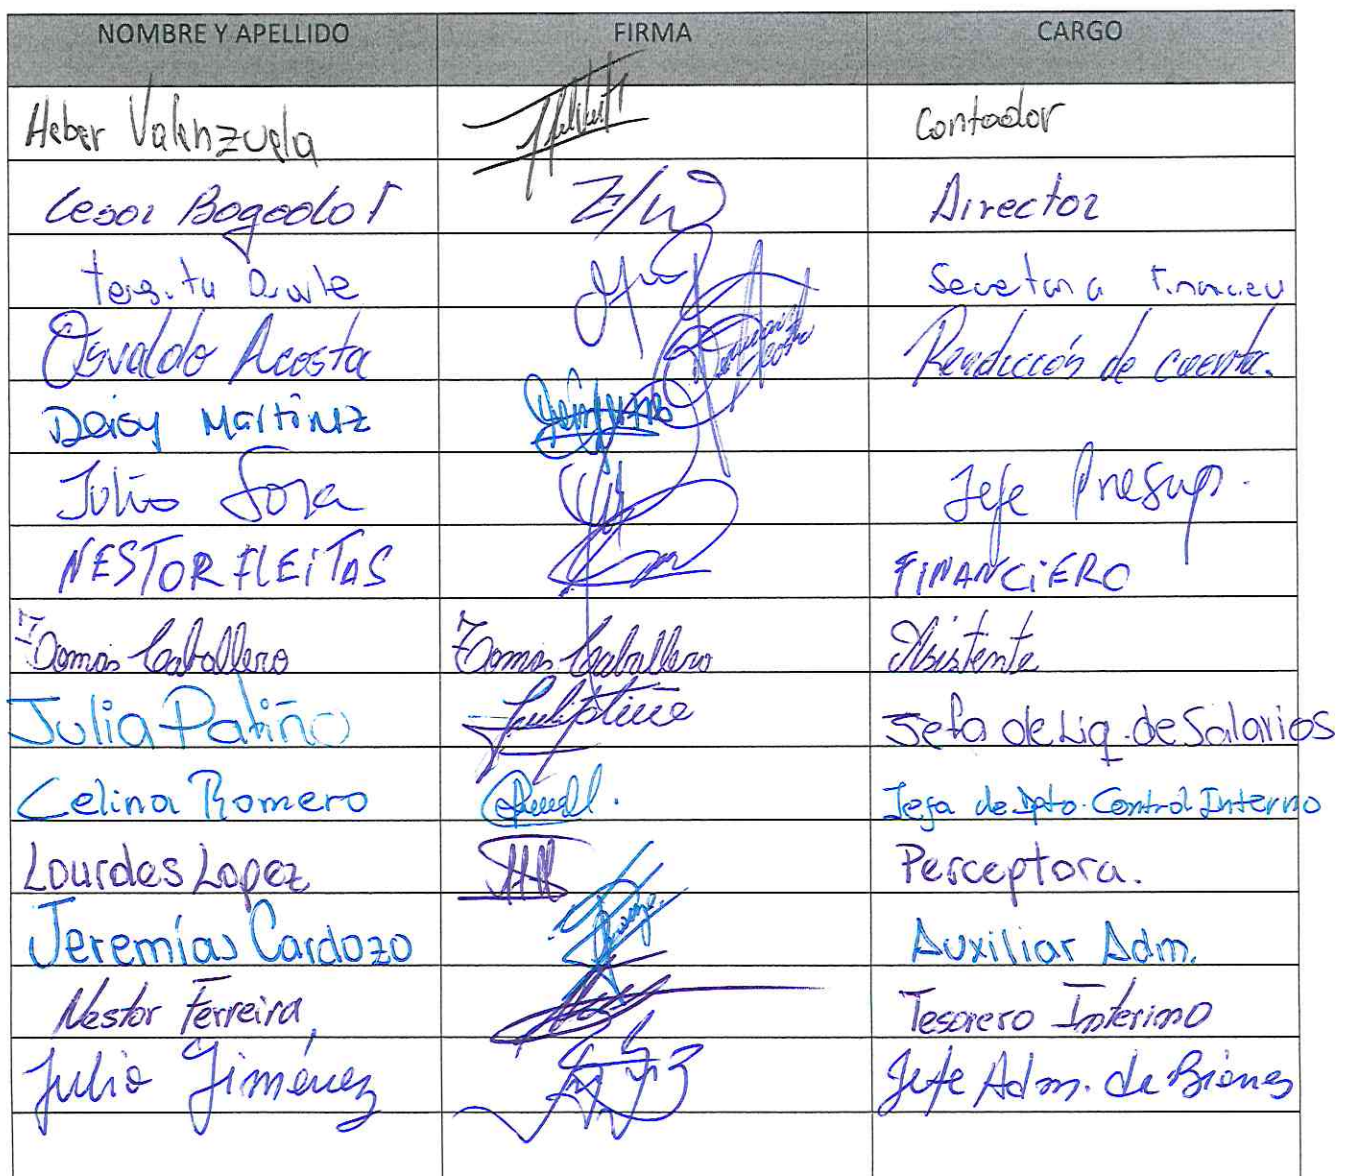 NOMBRE Y APELLIDO FIRMA CARGO
Heber Valenzuela Contador
Cesar Bogado Director
Osvaldo Acosta Rendicción de cuenta.
Deisy Martinez
Julio Sosa Jefe Presup.
NESTOR FLEiTAS FINANCiERO
Tomas Caballero Tomas Caballero Asistente
Julia Patiño Jefa de Liq. de Salarios
Celina Romero Jefa de Dpto. Control Interno
Lourdes Lopez Perceptora.
Jeremías Cardozo Auxiliar Adm.
Nestor Ferreira Tesorero Interino
Julio Jiménez Jefe Adm. de Bienes